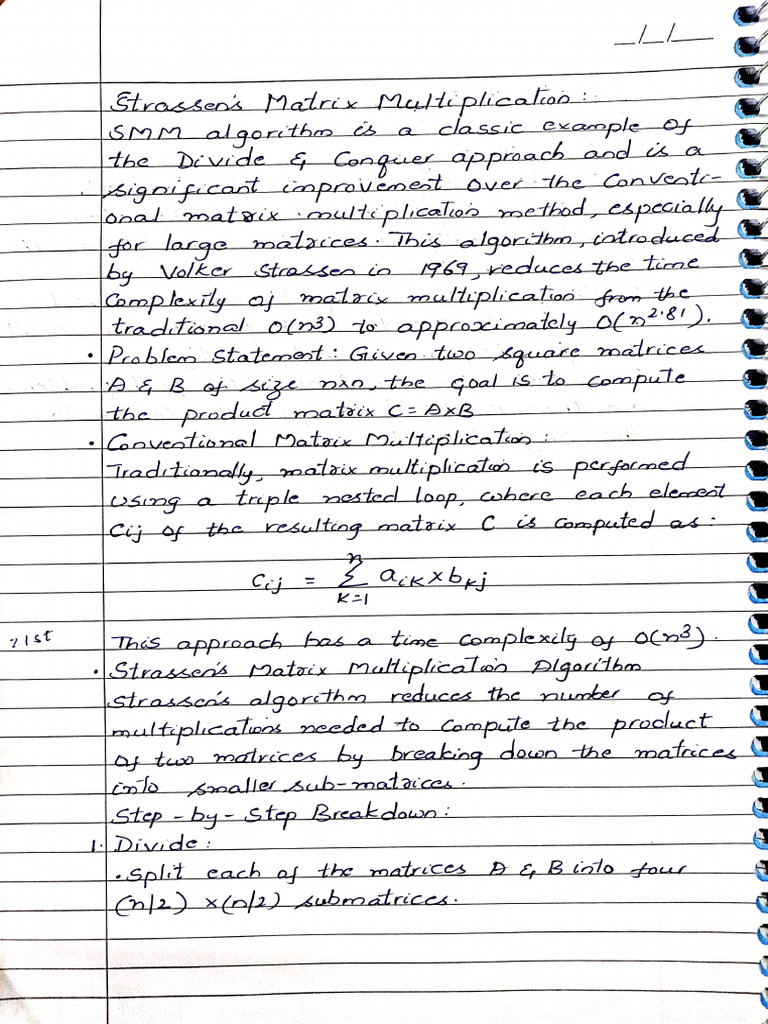 _/_/_
Strassen's Matrix Multiplication:
SMM algorithm is a classic example of
the Divide & Conquer approach and is a
significant improvement over the Conventi-
onal matrix multiplication method, especially
for large matrices. This algorithm, introduced
by Volker Strassen in 1969, reduces the time
Complexity of matrix multiplication from the
traditional O(n³) to approximately O(n^2.81).
• Problem Statement: Given two square matrices
A & B of size n×n, the goal is to compute
the product matrix C = A×B
• Conventional Matrix Multiplication:
Traditionally, matrix multiplication is performed
using a triple nested loop, where each element
Cij of the resulting matrix C is computed as:
Cij = n∑k=1 aik × bkj
This approach has a time complexity of O(n³).
• Strassen's Matrix Multiplication Algorithm
Strassen's algorithm reduces the number of
multiplications needed to compute the product
of two matrices by breaking down the matrices
into smaller sub-matrices.
Step-by-Step Breakdown:
1. Divide:
• Split each of the matrices A & B into four
(n/2) × (n/2) submatrices.